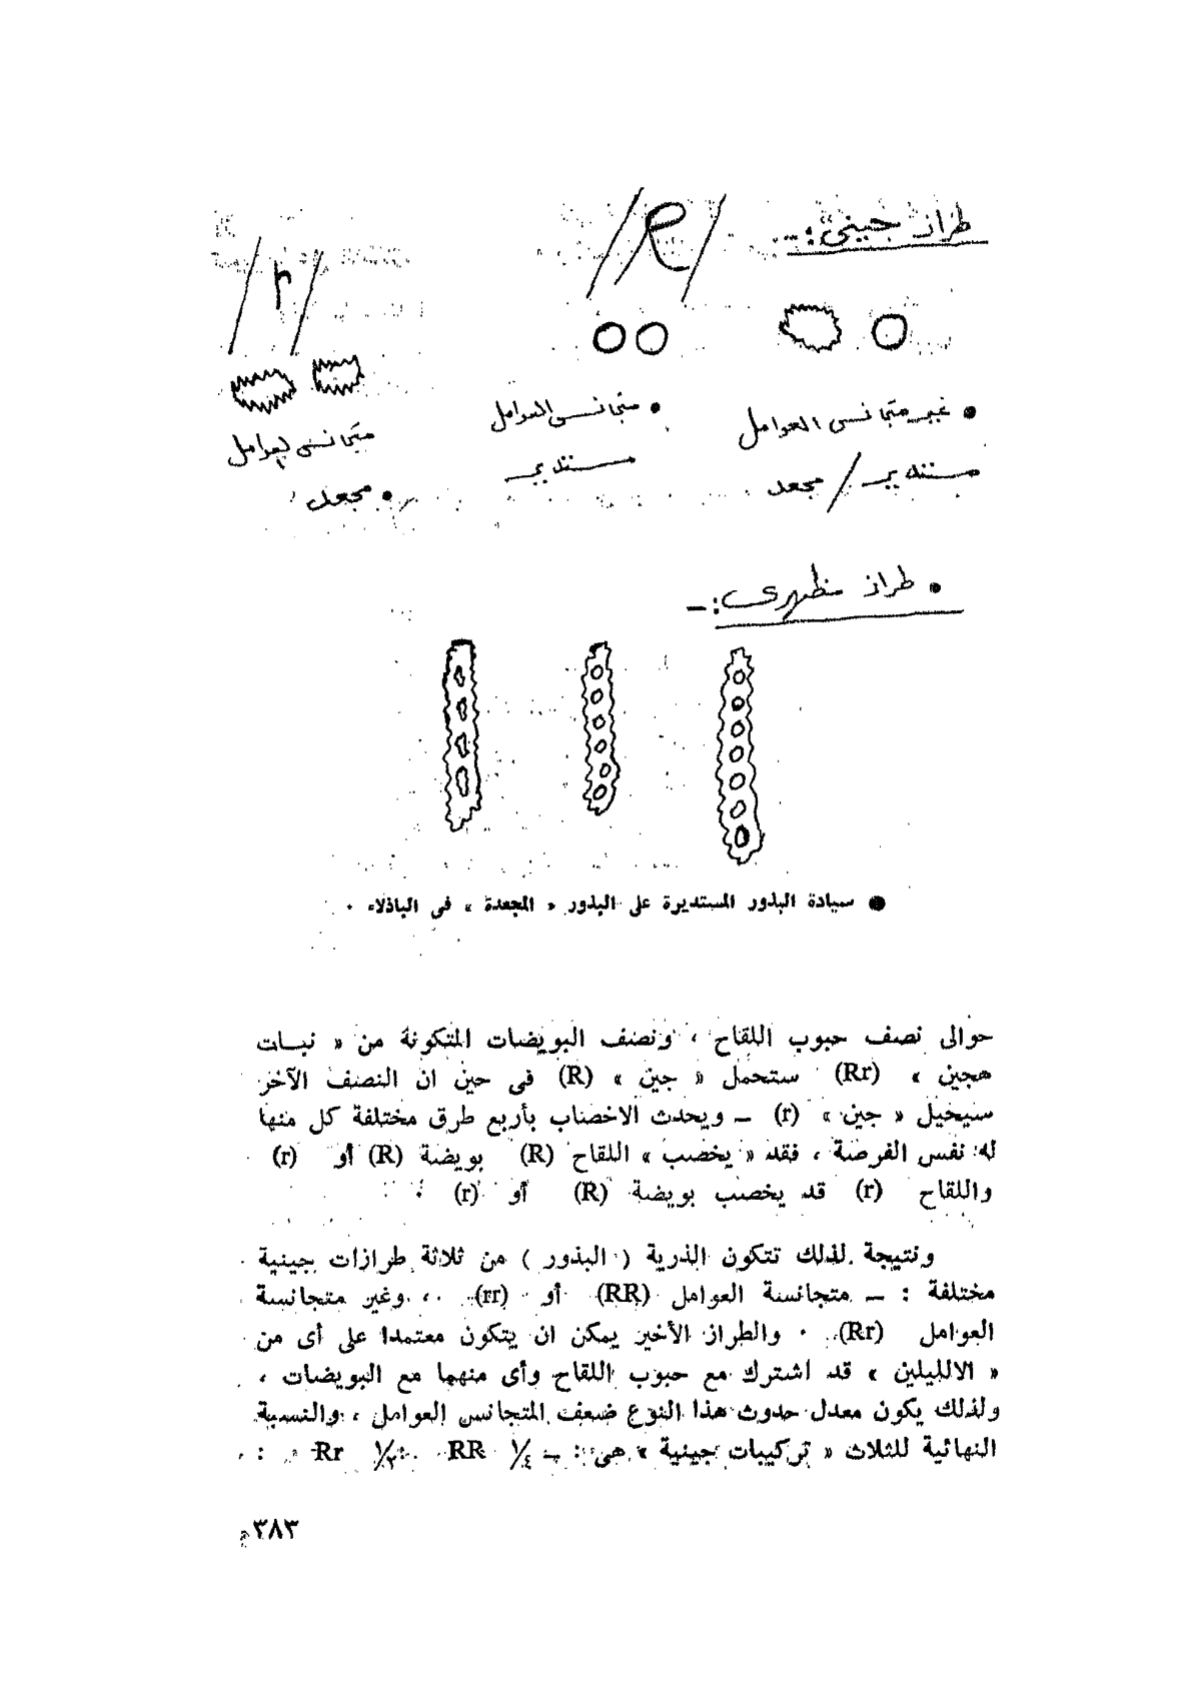 طراز جينى :ــ
R
r
• غير متجانس العوامل
مستدير / مجعد
• متجانس العوامل
مستدير
متجانس العوامل
• مجعد
• طراز مظهرى :ــ
● سيادة البذور المستديرة على البذور « المجعدة » فى الباذلاء ٠
حوالى نصف حبوب اللقاح ، ونصف البويضات المتكونة من « نبات
هجين » (Rr) ستحمل « جين » (R) فى حين ان النصف الآخر
سيحيل « جين » (r) ــ ويحدث الاخصاب بأربع طرق مختلفة كل منها
له نفس الفرصة ، فقد « يخصب » اللقاح (R) بويضة (R) أو (r)
واللقاح (r) قد يخصب بويضة (R) أو (r) ٠
ونتيجة لذلك تتكون الذرية ( البذور ) من ثلاثة طرازات جينية
مختلفة : ــ متجانسة العوامل (RR) أو (rr) ، وغير متجانسة
العوامل (Rr) ٠ والطراز الأخير يمكن ان يتكون معتمدا على أى من
« الالليلين » قد اشترك مع حبوب اللقاح وأى منهما مع البويضات ،
ولذلك يكون معدل حدوث هذا النوع ضعف المتجانس العوامل ، والنسبة
النهائية للثلاث « تركيبات جينية » هى : ــ ١/٤ RR : ١/٢ Rr :
٣٨٣